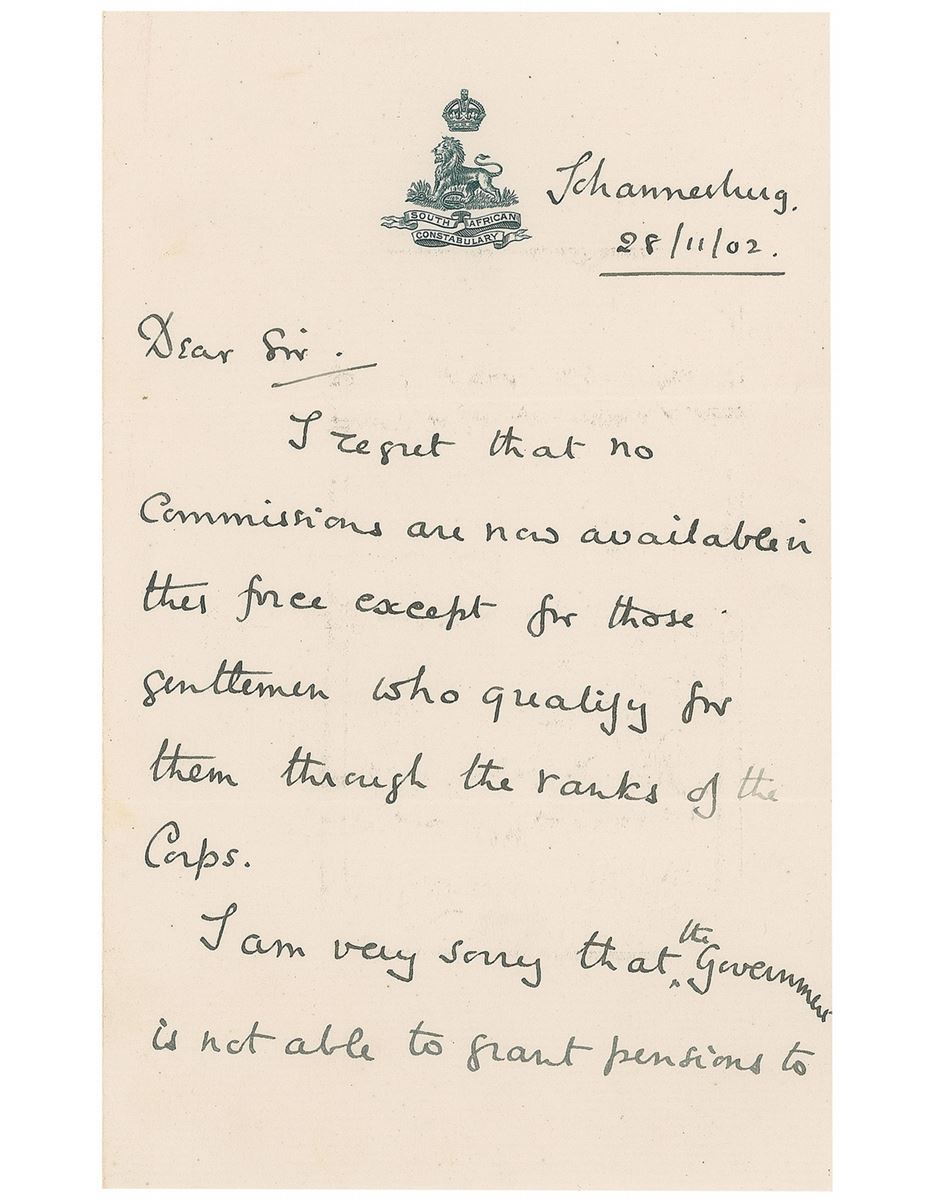 SOUTH AFRICAN
CONSTABULARY
Johannesburg.
28/11/02.
Dear Sir.
I regret that no
Commissions are now available in
this force except for those
gentlemen who qualify for
them through the ranks of the
Corps.
I am very sorry that the Government
is not able to grant pensions to